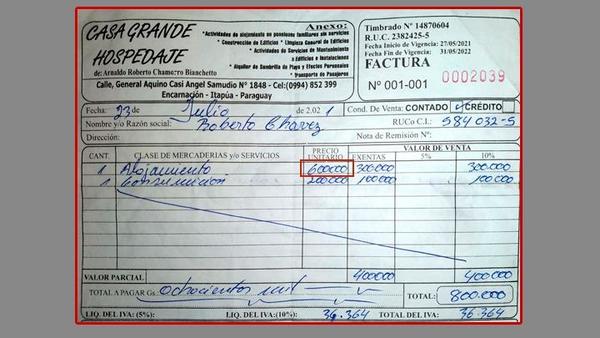 CASA GRANDE
HOSPEDAJE
de: Arnaldo Roberto Chamorro Bianchetto
Anexo:
*Actividades de alojamiento en pensiones familiares sin servicios
*Construcción de Edificios *Limpieza General de Edificios
*Actividades de Servicios de Mantenimiento
a Edificios e Instalaciones
*Alquiler de Sombrilla de Playa y Efectos Personales
*Transporte de Pasajeros
Calle, General Aquino Casi Angel Samudio N° 1848 - Cel:(0994) 852 399
Encarnación - Itapúa - Paraguay
Timbrado N° 14870604
R.U.C. 2382425-5
Fecha Inicio de Vigencia: 27/05/2021
Fecha Fin de Vigencia: 31/05/2022
FACTURA
N° 001-001 0002039
Fecha: 23 de Julio de 2.02 1 Cond. De Venta: CONTADO CRÉDITO
Nombre y/o Razón social: Roberto Chavez RUCo C.I.: 584032-5
Dirección: Nota de Remisión N°:
CANT. CLASE DE MERCADERIAS y/o SERVICIOS PRECIO UNITARIO VALOR DE VENTA
EXENTAS 5% 10%
1 Alojamiento 600000 300000 300.000
1 Consumicion 200000 100000 100000
VALOR PARCIAL 400000 400000
TOTAL A PAGAR Gs. Ochocientos mil TOTAL: 800.000
LIQ. DEL IVA: (5%): LIQ. DEL IVA: (10%) 36.364 TOTAL DEL IVA: 36.364